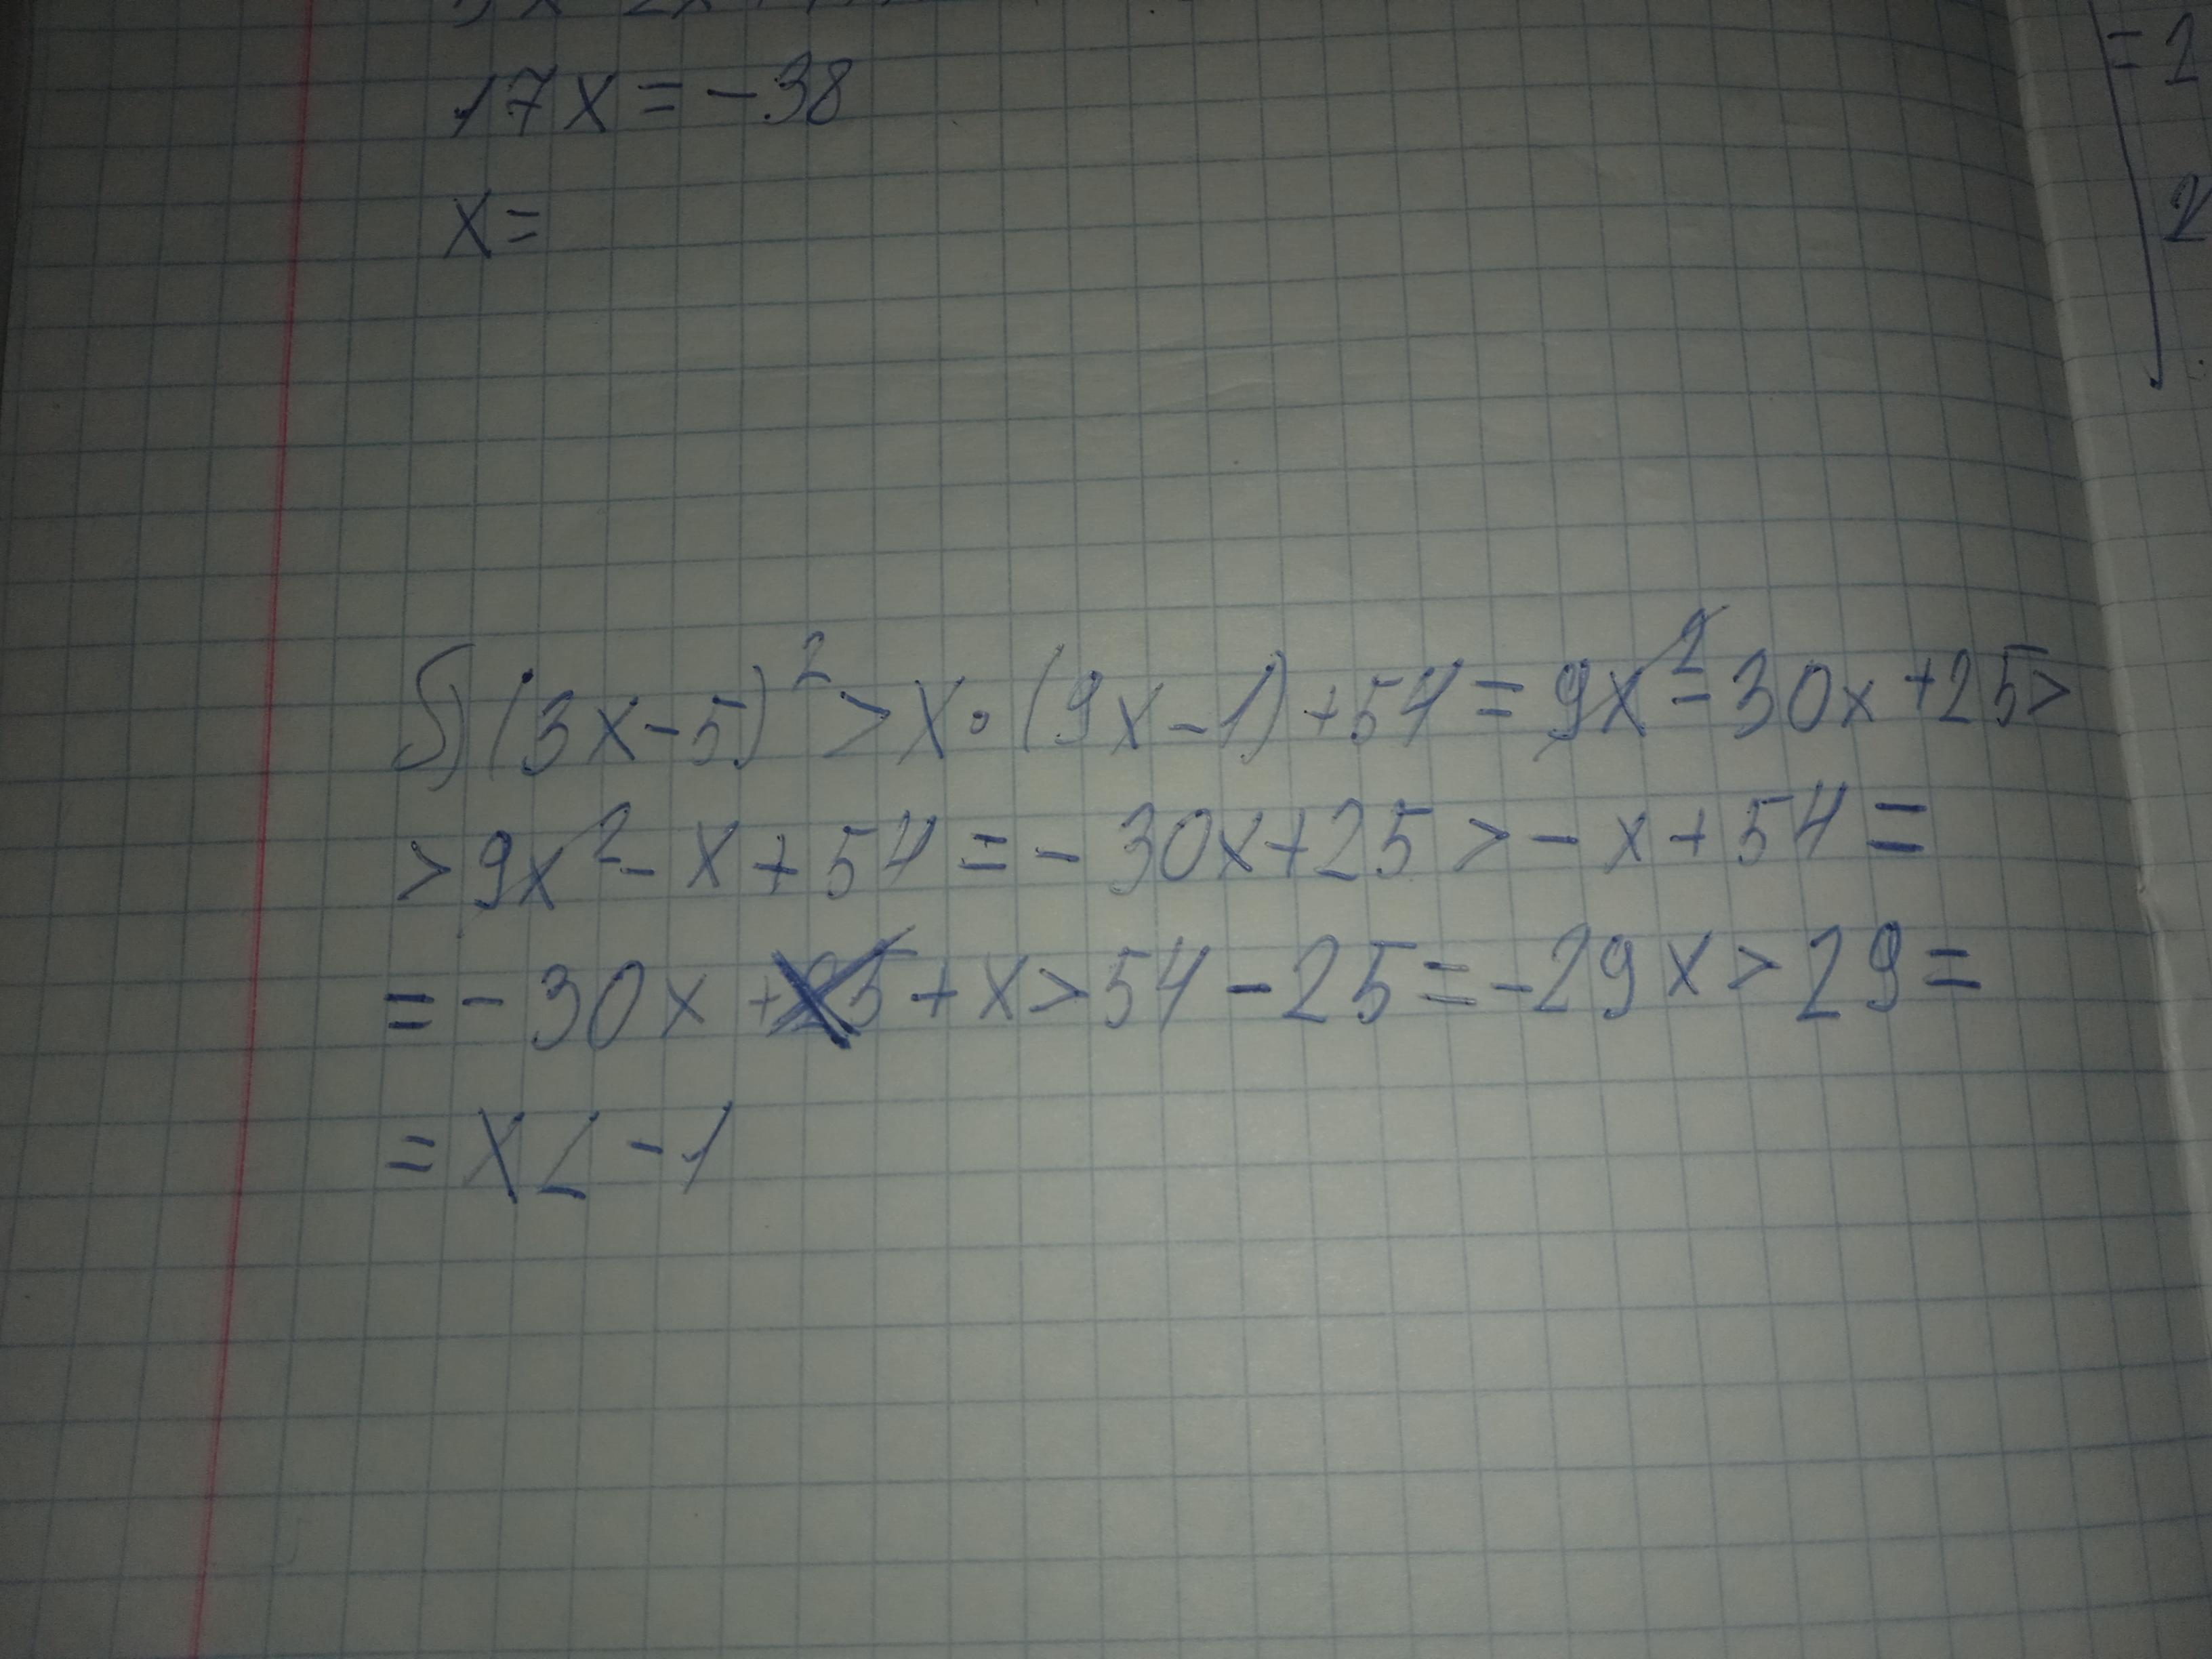 17x = -38
x =
б) (3x-5)² > x · (9x-1) + 54 = 9x² - 30x + 25 >
> 9x² - x + 54 = -30x + 25 > -x + 54 =
= -30x + 25 + x > 54 - 25 = -29x > 29 =
= x < -1
= 2
2